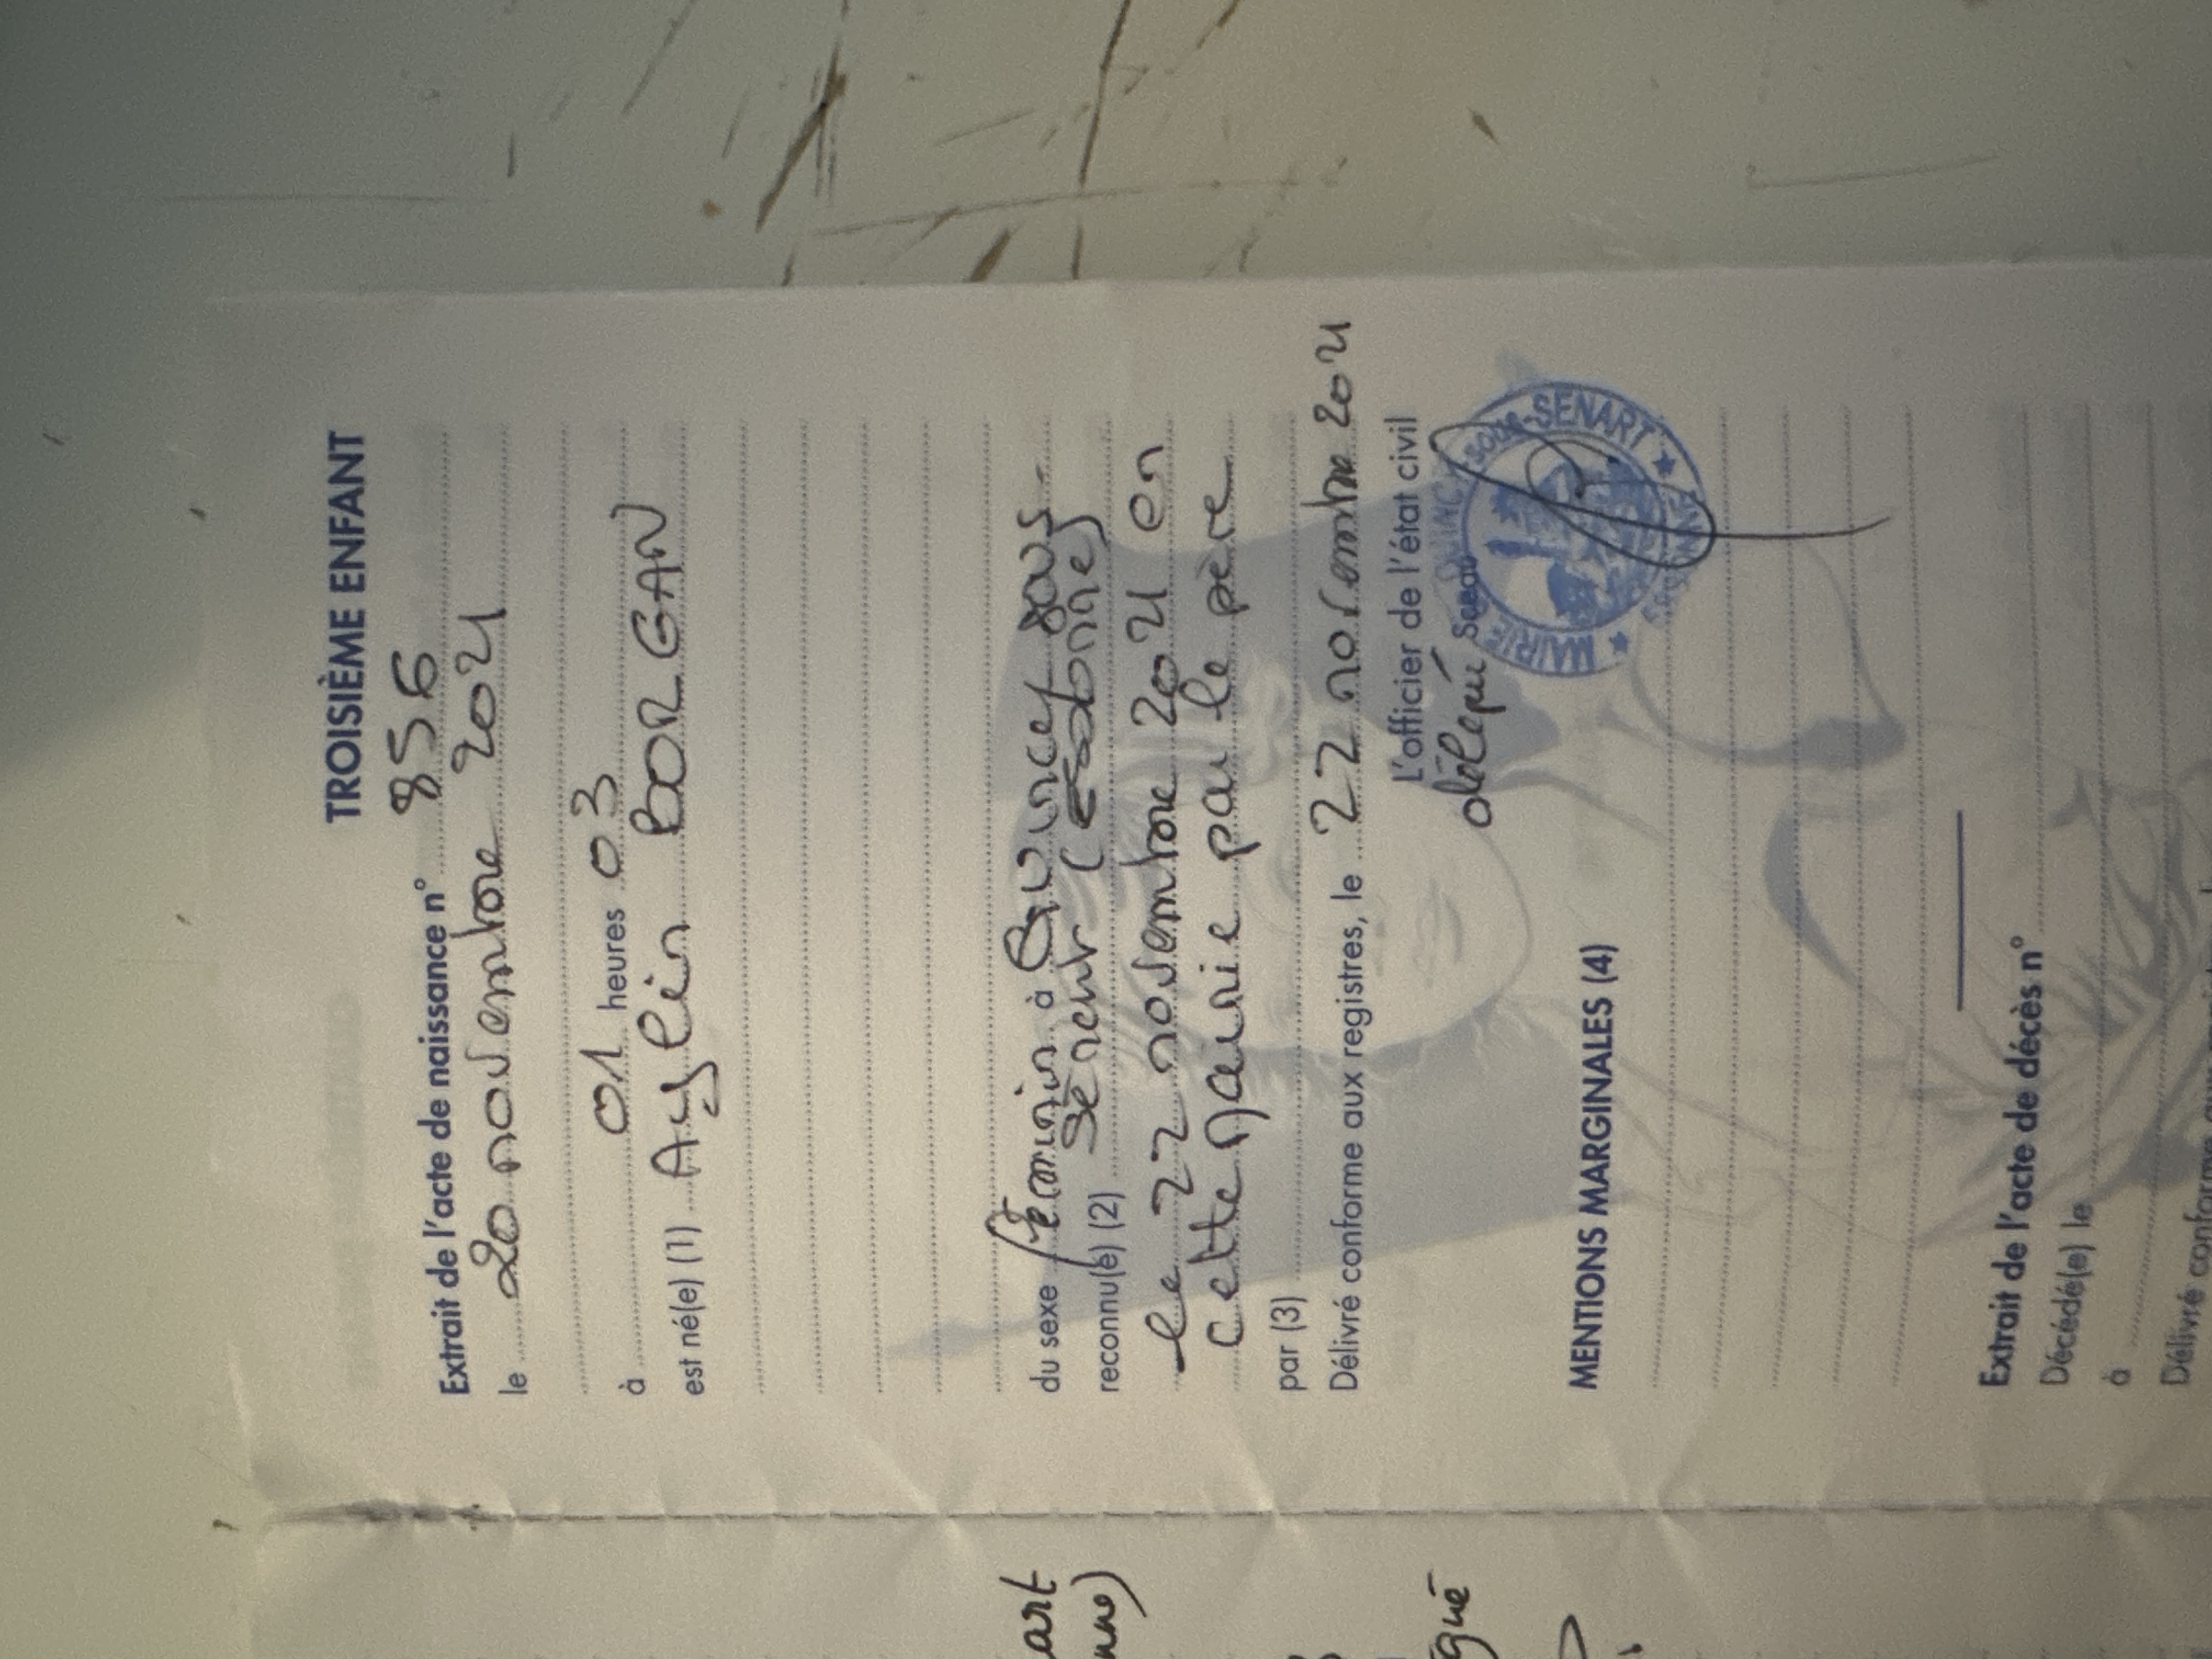 TROISIÈME ENFANT
Extrait de l'acte de naissance n° 856
le 20 novembre 2021
à 01 heures 03
est né(e) (1) Aylin BORGAN
du sexe féminin à Quincy sous-
reconnu(e) (2) Sénart (Essonne)
le 22 novembre 2021 en
cette mairie par le père
par (3)
Délivré conforme aux registres, le 22 novembre 2021
L'officier de l'état civil
délégué Sceau
MAIRIE QUINCY-sous-SENART
ESSONNE
MENTIONS MARGINALES (4)
Extrait de l'acte de décès n°
Décédé(e) le
à
Délivré conforme aux
art
nne)
gué